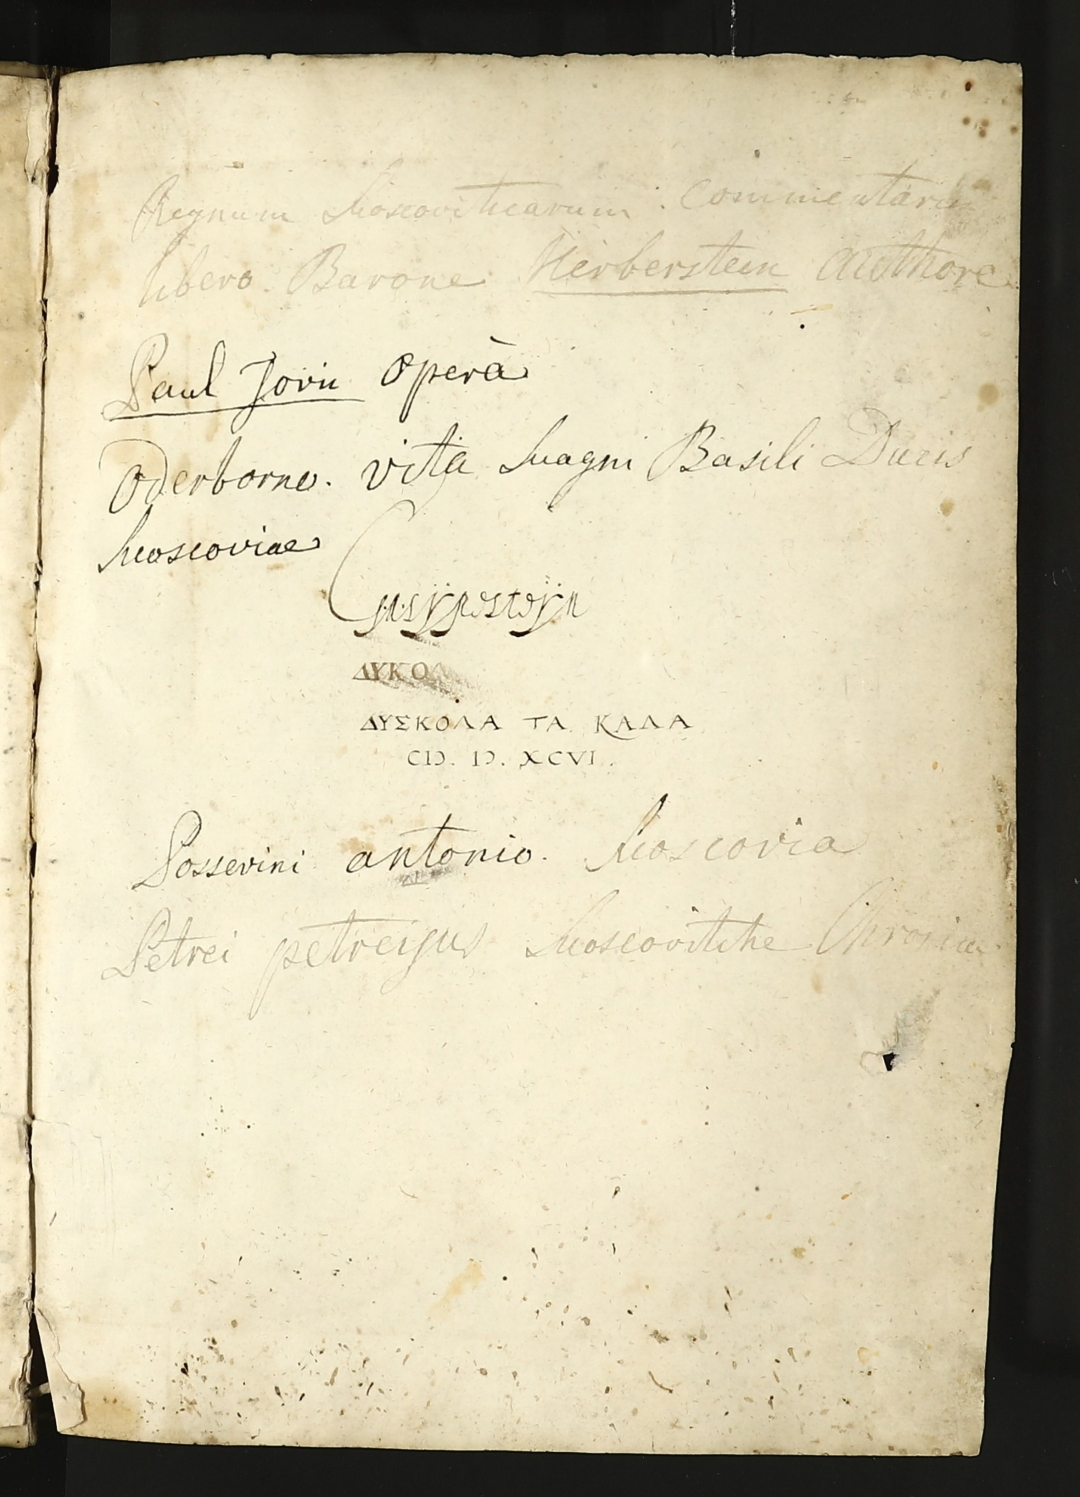 Regnum Moscoviticarum. Commentarii
libero. Barone Herberstein Authore
Paul Jovii Operà
Oderborne. vita Magni Basili Ducis
Moscoviae
ΔΥΚΟ
ΔΥΣΚΟΛΑ ΤΑ ΚΑΛΑ
CIↃ. IↃ. XCVI.
Possevini antonio. Moscovia
Petrei petreijus Moscovitche Chronica